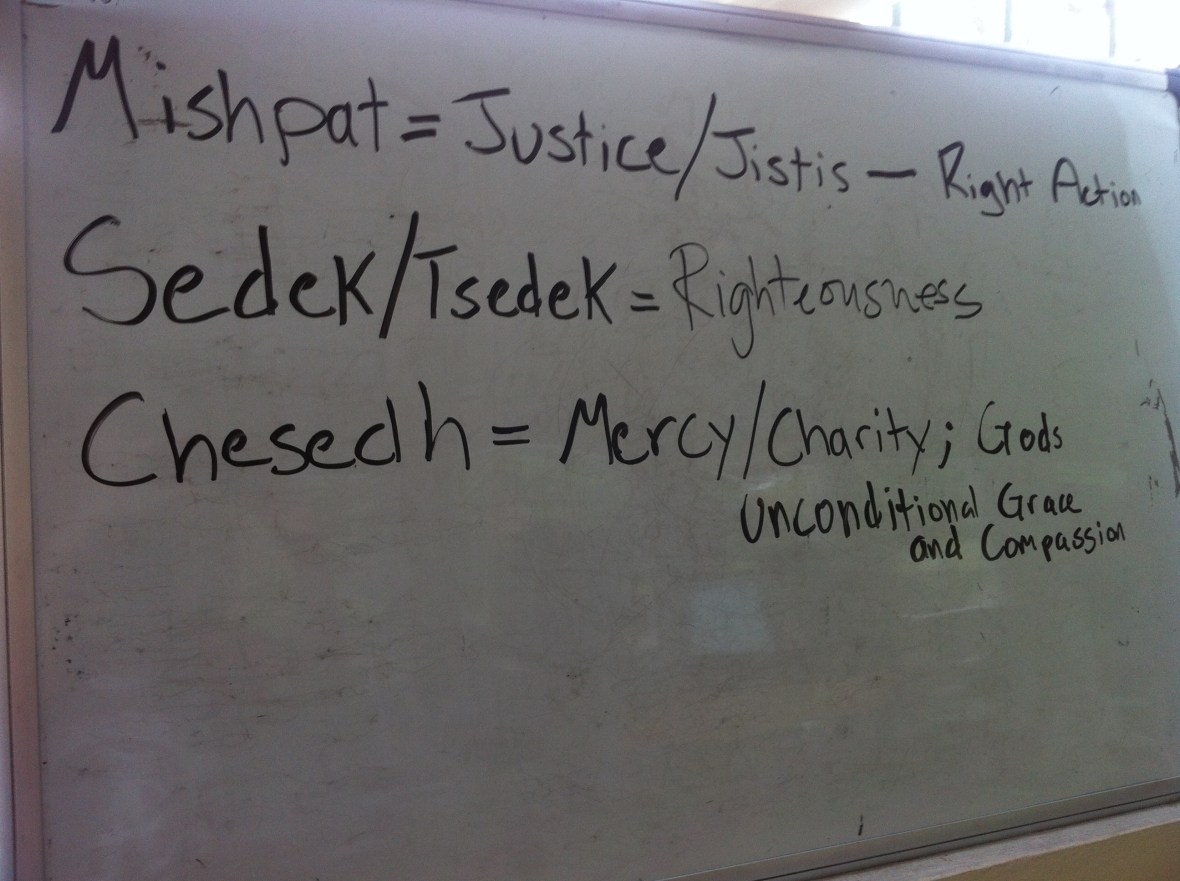 Mishpat = Justice/Jistis — Right Action
Sedek/Tsedek = Righteousness
Chesedh = Mercy/Charity; Gods
Unconditional Grace
and Compassion